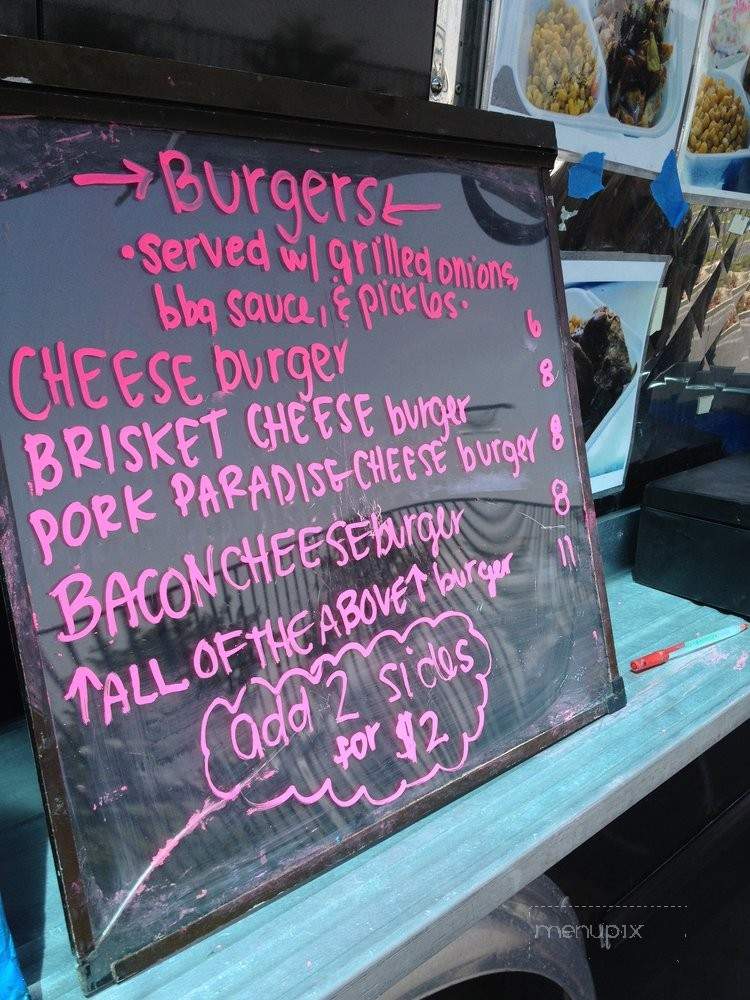 →Burgers←
•served w/ grilled onions,
bbq sauce, & pickles•
CHEESE burger 6
BRISKET CHEESE burger 8
PORK PARADISE CHEESE burger 8
BACON CHEESE burger 8
↑ALL OF THE ABOVE↑ burger 11
add 2 sides
for $2
menupix